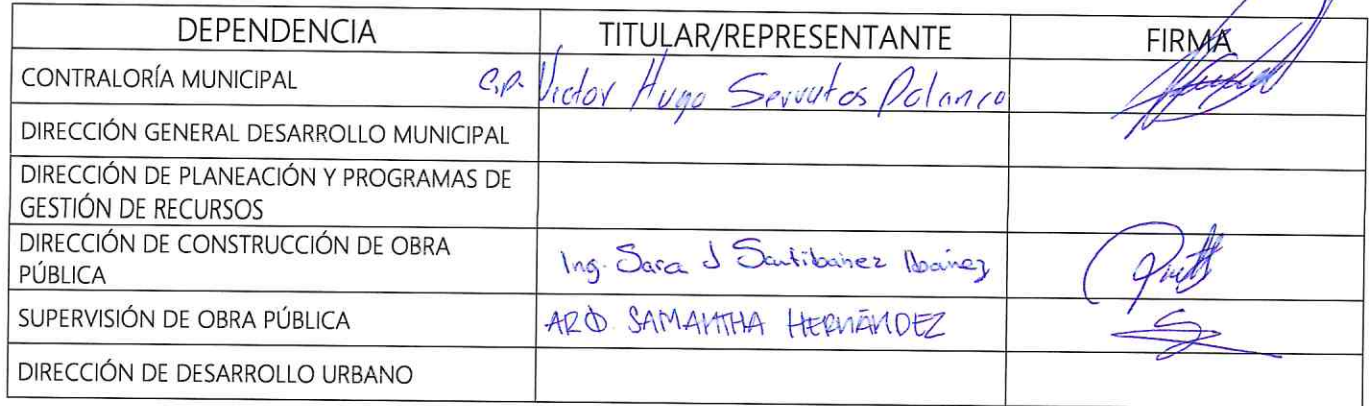 DEPENDENCIA TITULAR/REPRESENTANTE FIRMA
CONTRALORÍA MUNICIPAL C.P. Victor Hugo Servutos Polanco
DIRECCIÓN GENERAL DESARROLLO MUNICIPAL
DIRECCIÓN DE PLANEACIÓN Y PROGRAMAS DE
GESTIÓN DE RECURSOS
DIRECCIÓN DE CONSTRUCCIÓN DE OBRA
PÚBLICA
Ing. Sara J Santibañez Ibañez
SUPERVISIÓN DE OBRA PÚBLICA ARQ. SAMANTHA HERNÁNDEZ
DIRECCIÓN DE DESARROLLO URBANO